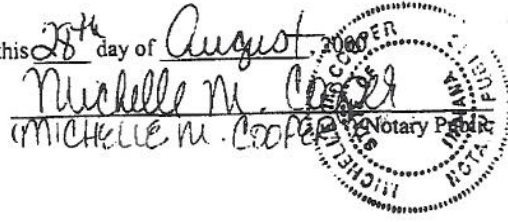 this 28th day of August, 2000
Michelle M. Cooper
(MICHELLE M. COOPER Notary Public
MICHELLE COOPER
INDIANA